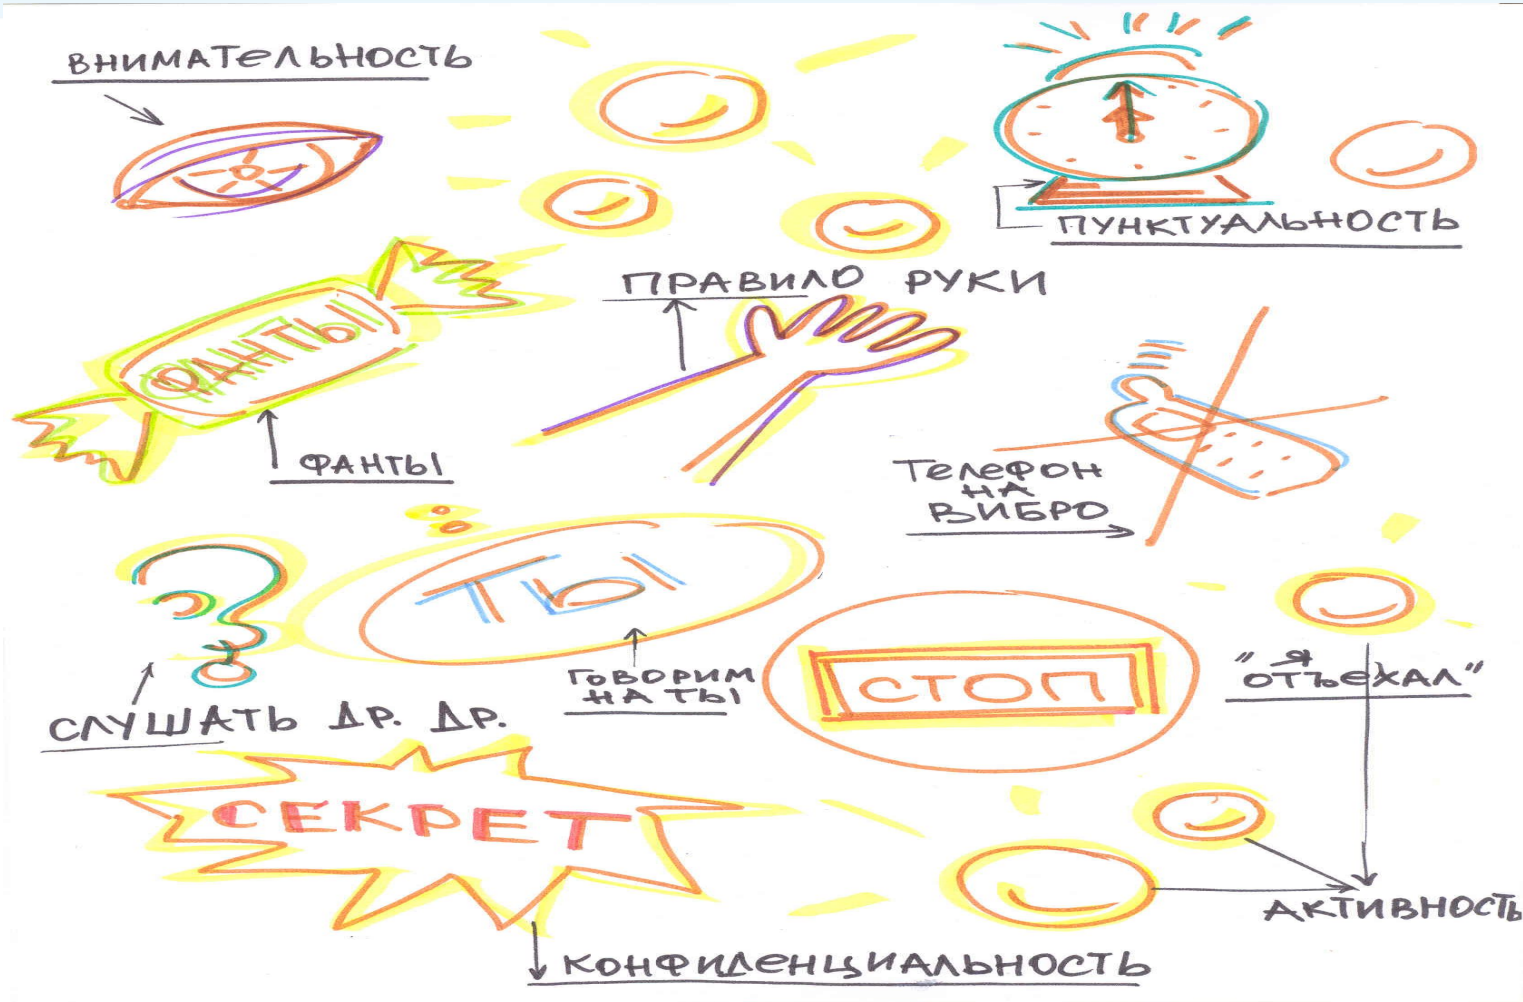 ВНИМАТЕЛЬНОСТЬ
ПУНКТУАЛЬНОСТЬ
ПРАВИЛО РУКИ
ФАНТЫ
ФАНТЫ
ТЕЛЕФОН
НА
ВИБРО
ТЫ
ГОВОРИМ
НА ТЫ
СЛУШАТЬ ДР. ДР.
СТОП
" Я
ОТЪЕХАЛ"
СЕКРЕТ
АКТИВНОСТЬ
КОНФИДЕНЦИАЛЬНОСТЬ